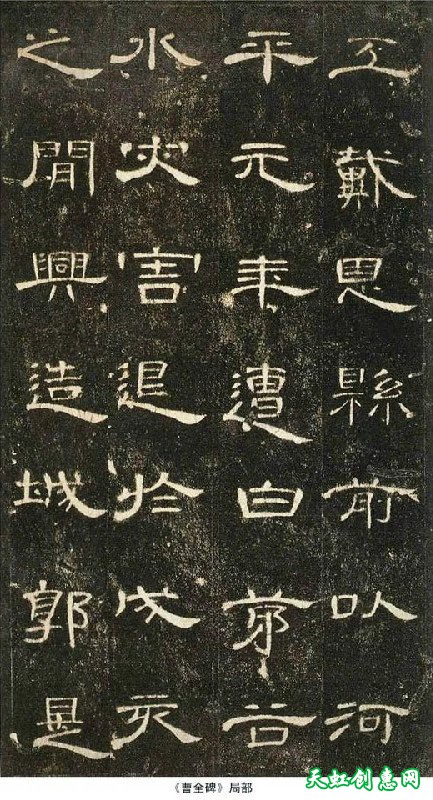 工戴恩縣前以河
平元年遭白茅谷
水灾害退於戌亥
之閒興造城郭是
《曹全碑》局部
天虹创意网